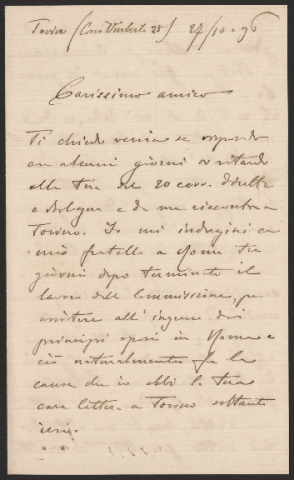 Torino (Corso Umberto 25) 27/10-96
Carissimo amico
Ti chiedo venia se rispondo
con alcuni giorni di ritardo
alla tua del 20 corr. diretta
a Bologna e da me riscontrata a
Torino. Io mi indugiai con
mio fratello a Roma tre
giorni dopo terminato il
lavoro della Commissione, per
assistere all' ingresso dei
principi sposi in Roma e
ciò naturalmente fu la
causa che io ebbi la tua
cara lettera a Torino soltanto
ieri.